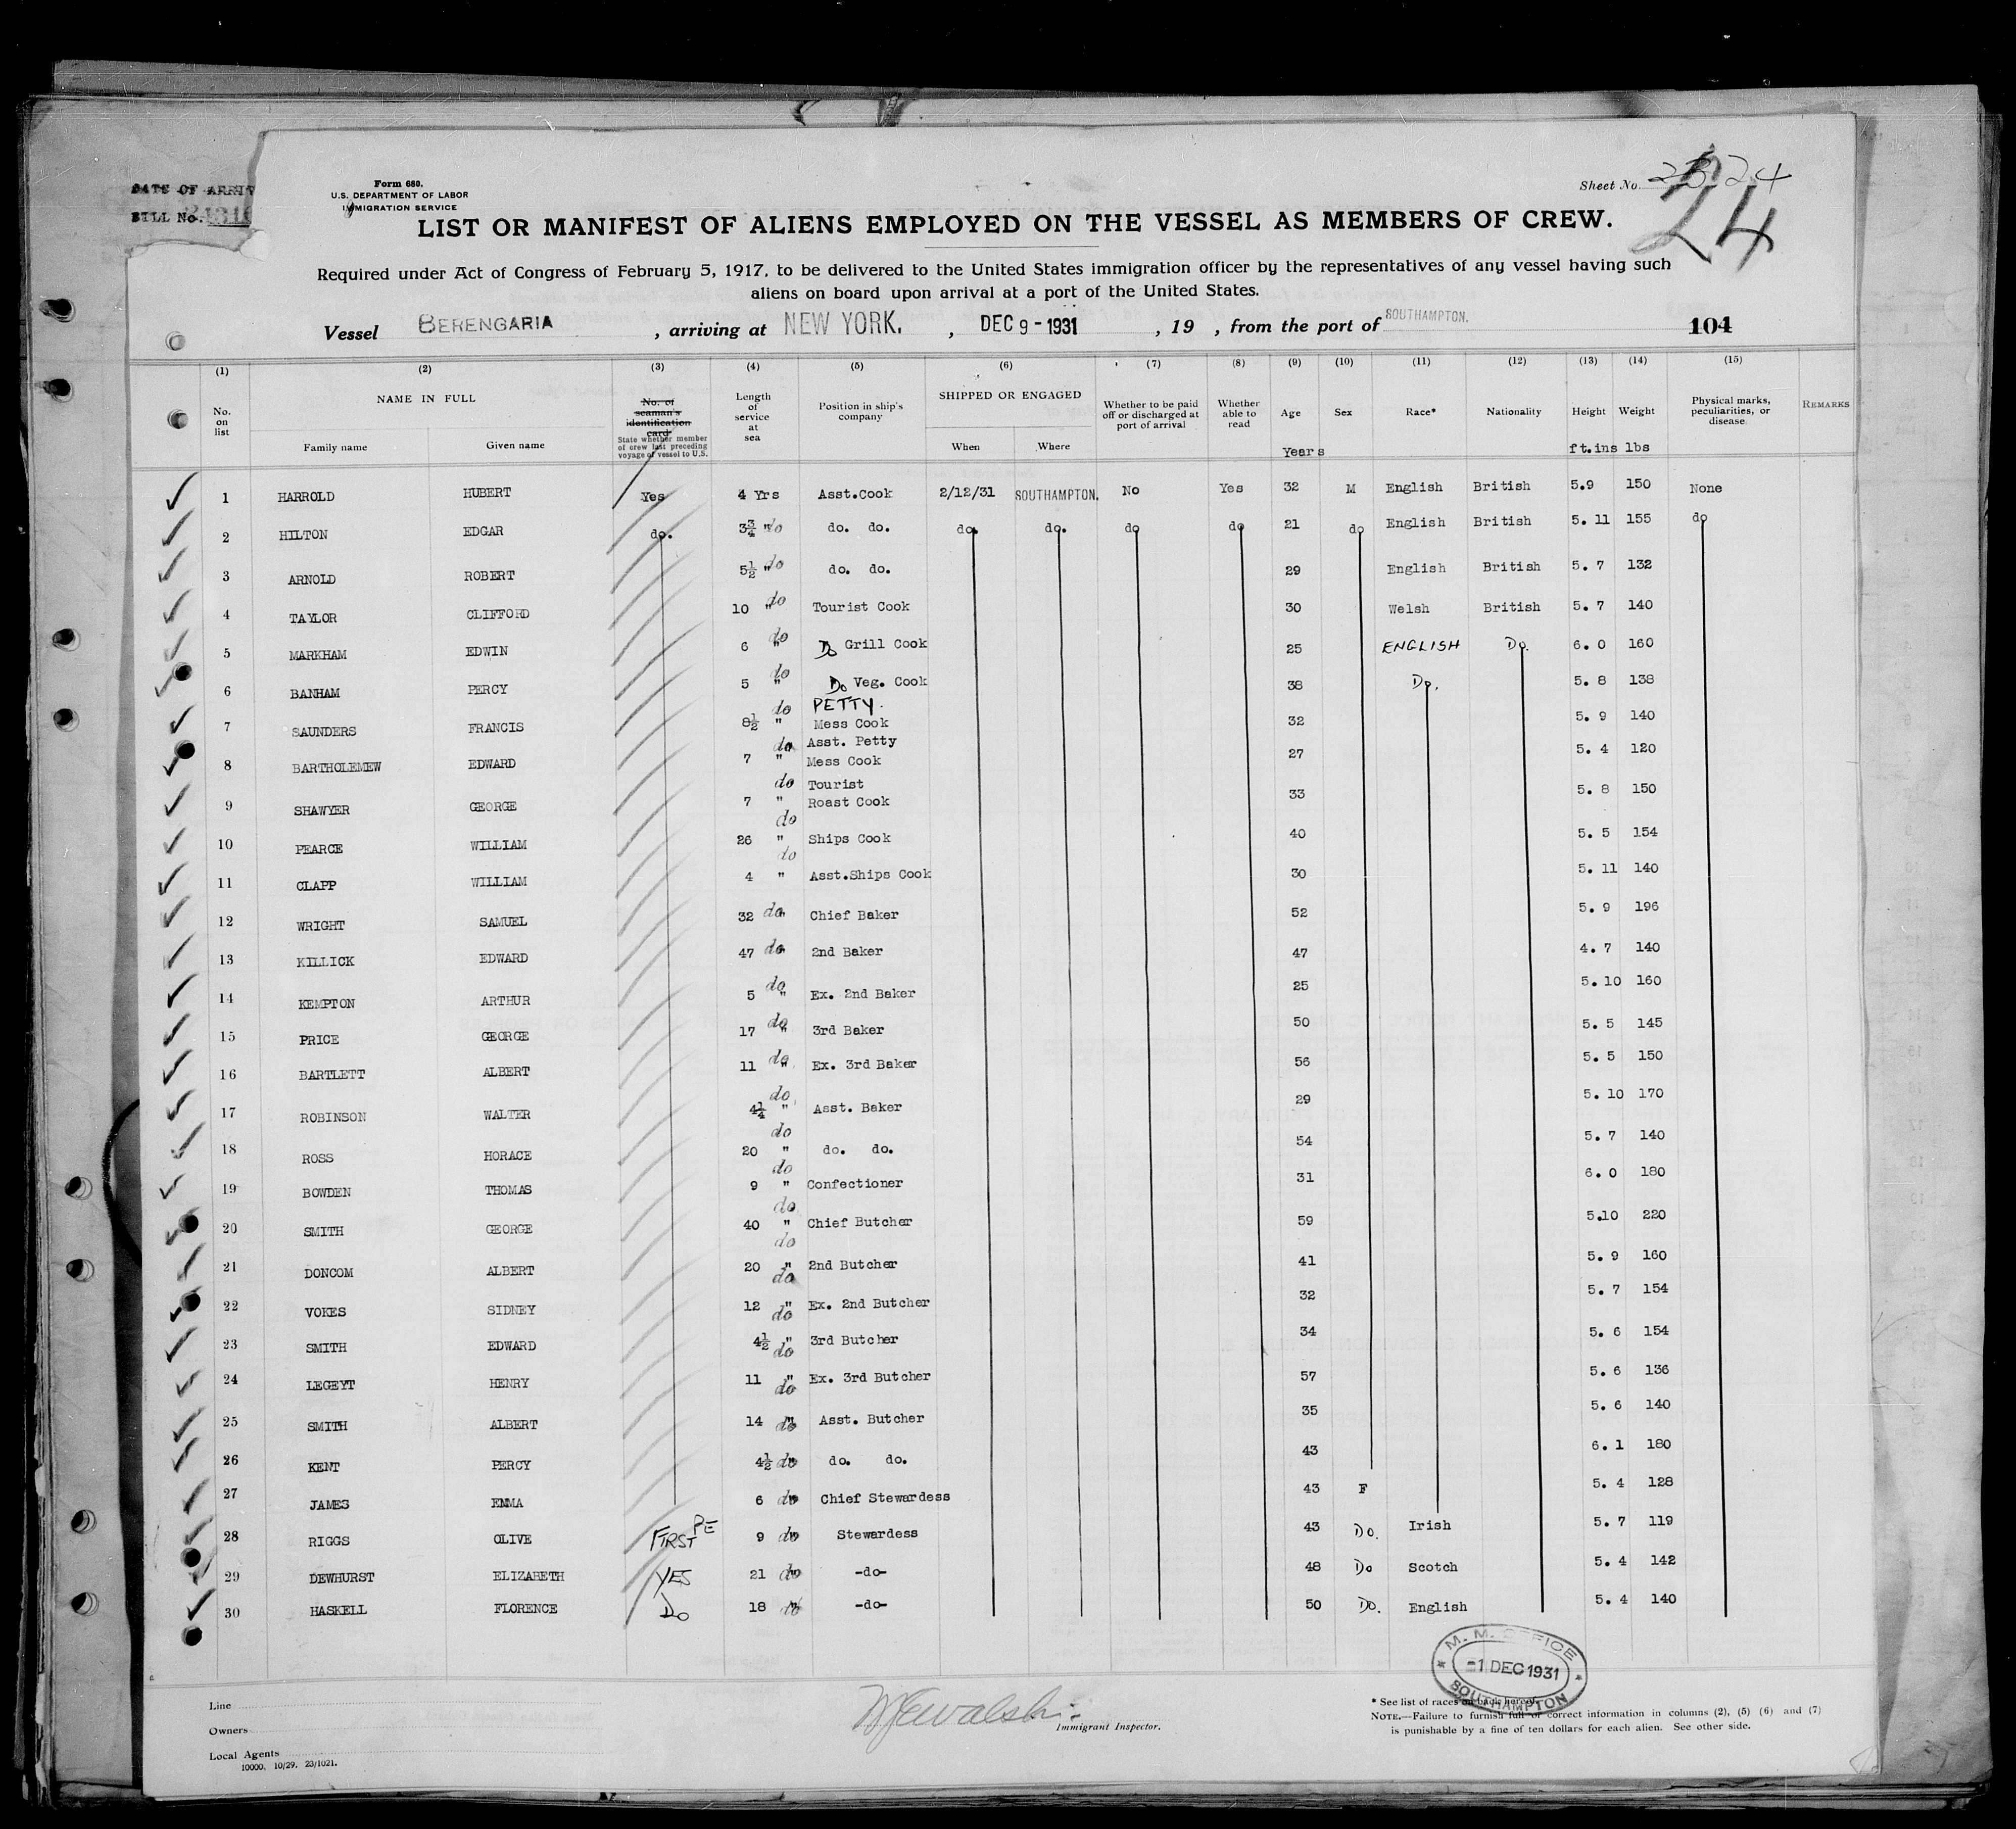 DATE OF ARRIV
BILL No.
Form 680.
U.S. DEPARTMENT OF LABOR
IMMIGRATION SERVICE
Sheet No. 24
24
LIST OR MANIFEST OF ALIENS EMPLOYED ON THE VESSEL AS MEMBERS OF CREW.
Required under Act of Congress of February 5, 1917, to be delivered to the United States immigration officer by the representatives of any vessel having such
aliens on board upon arrival at a port of the United States.
Vessel BERENGARIA, arriving at NEW YORK., DEC 9 - 1931, 19 , from the port of SOUTHAMPTON. 104
(1) (2) (3) (4) (5) (6) (7) (8) (9) (10) (11) (12) (13) (14) (15)
No. on list
NAME IN FULL
Family name Given name
No. of seaman's identification card
State whether member of crew last preceding voyage of vessel to U.S.
Length of service at sea
Position in ship's company
SHIPPED OR ENGAGED
When Where
Whether to be paid off or discharged at port of arrival
Whether able to read
Age Years
Sex
Race*
Nationality
Height ft.ins
Weight lbs
Physical marks, peculiarities, or disease
REMARKS
1 HARROLD HUBERT Yes 4 Yrs Asst.Cook 2/12/31 SOUTHAMPTON. No Yes 32 M English British 5.9 150 None
2 HILTON EDGAR do. 3¾ " do do. do. do. do. do do 21 do English British 5. 11 155 do
3 ARNOLD ROBERT 5½ " do do. do. 29 English British 5. 7 132
4 TAYLOR CLIFFORD 10 " do Tourist Cook 30 Welsh British 5. 7 140
5 MARKHAM EDWIN 6 " do Do Grill Cook 25 ENGLISH Do. 6. 0 160
6 BANHAM PERCY 5 " do Do Veg. Cook 38 Do. 5. 8 138
7 SAUNDERS FRANCIS 8½ " do PETTY. Mess Cook 32 5. 9 140
8 BARTHOLEMEW EDWARD 7 " do Asst. Petty Mess Cook 27 5. 4 120
9 SHAWYER GEORGE 7 " do Tourist Roast Cook 33 5. 8 150
10 PEARCE WILLIAM 26 " do Ships Cook 40 5. 5 154
11 CLAPP WILLIAM 4 " do Asst.Ships Cook 30 5. 11 140
12 WRIGHT SAMUEL 32 do Chief Baker 52 5. 9 196
13 KILLICK EDWARD 47 do 2nd Baker 47 4. 7 140
14 KEMPTON ARTHUR 5 " do Ex. 2nd Baker 25 5. 10 160
15 PRICE GEORGE 17 " do 3rd Baker 50 5. 5 145
16 BARTLETT ALBERT 11 " do Ex. 3rd Baker 56 5. 5 150
17 ROBINSON WALTER 4¼ " do Asst. Baker 29 5. 10 170
18 ROSS HORACE 20 " do do. do. 54 5. 7 140
19 BOWDEN THOMAS 9 " do Confectioner 31 6. 0 180
20 SMITH GEORGE 40 " do Chief Butcher 59 5.10 220
21 DONCOM ALBERT 20 " do 2nd Butcher 41 5. 9 160
22 VOKES SIDNEY 12 " do Ex. 2nd Butcher 32 5. 7 154
23 SMITH EDWARD 4½ " do 3rd Butcher 34 5. 6 154
24 LEGEYT HENRY 11 " do Ex. 3rd Butcher 57 5. 6 136
25 SMITH ALBERT 14 " do Asst. Butcher 35 5. 6 140
26 KENT PERCY 4½ " do do. do. 43 6. 1 180
27 JAMES EMMA 6 " do Chief Stewardess 43 F 5. 4 128
28 RIGGS OLIVE FIRST PE 9 " do Stewardess 43 Do. Irish 5. 7 119
29 DEWHURST ELIZABETH YES 21 " do -do- 48 Do Scotch 5. 4 142
30 HASKELL FLORENCE Do 18 " do -do- 50 Do. English 5. 4 140
M. M. OFFICE
-1 DEC 1931
SOUTHAMPTON
Line
Owners
Local Agents
10000. 10/29. 23/1021.
Immigrant Inspector.
* See list of races on back hereof.
NOTE.—Failure to furnish full or correct information in columns (2), (5) (6) and (7)
is punishable by a fine of ten dollars for each alien. See other side.